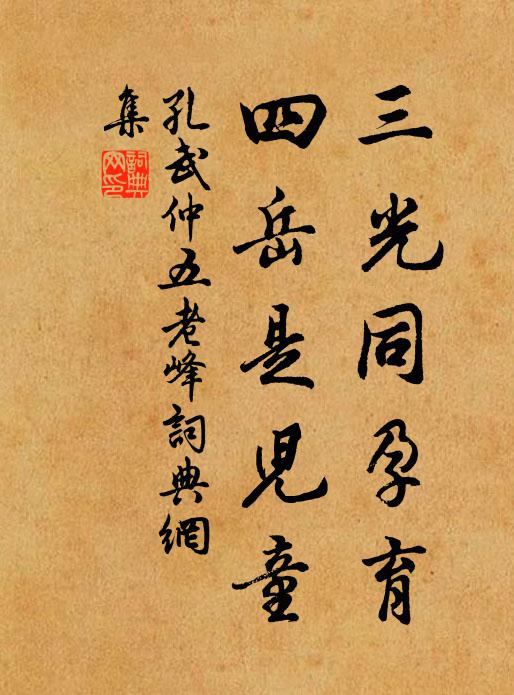 三光同孕育
四岳是児童
孔武仲五老峰詞典網
集
詞典
网印